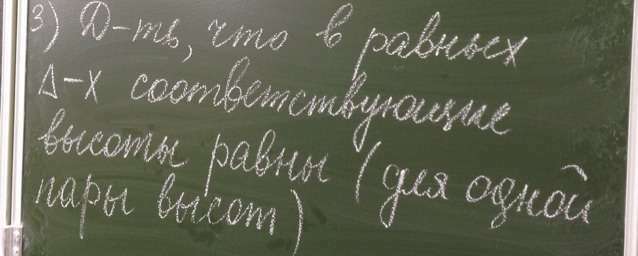 3) Д-ть, что в равных
Δ-х соответствующие
высоты равны (для одной
пары высот)